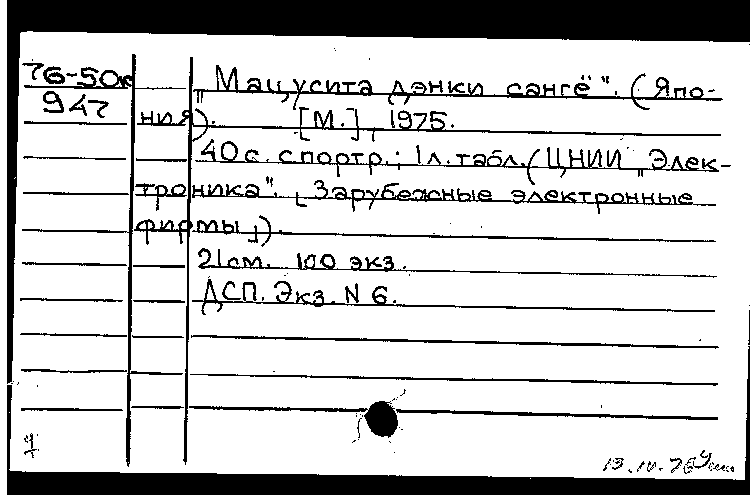 76-50к
947
„Мацусита дэнки сангё". (Япо-
ния). [М.], 1975.
40 с. с портр.; 1 л. табл. (ЦНИИ „Элек-
троника". [Зарубежные электронные
фирмы]).
21 см. 100 экз.
ДСП. Экз. N 6.
1